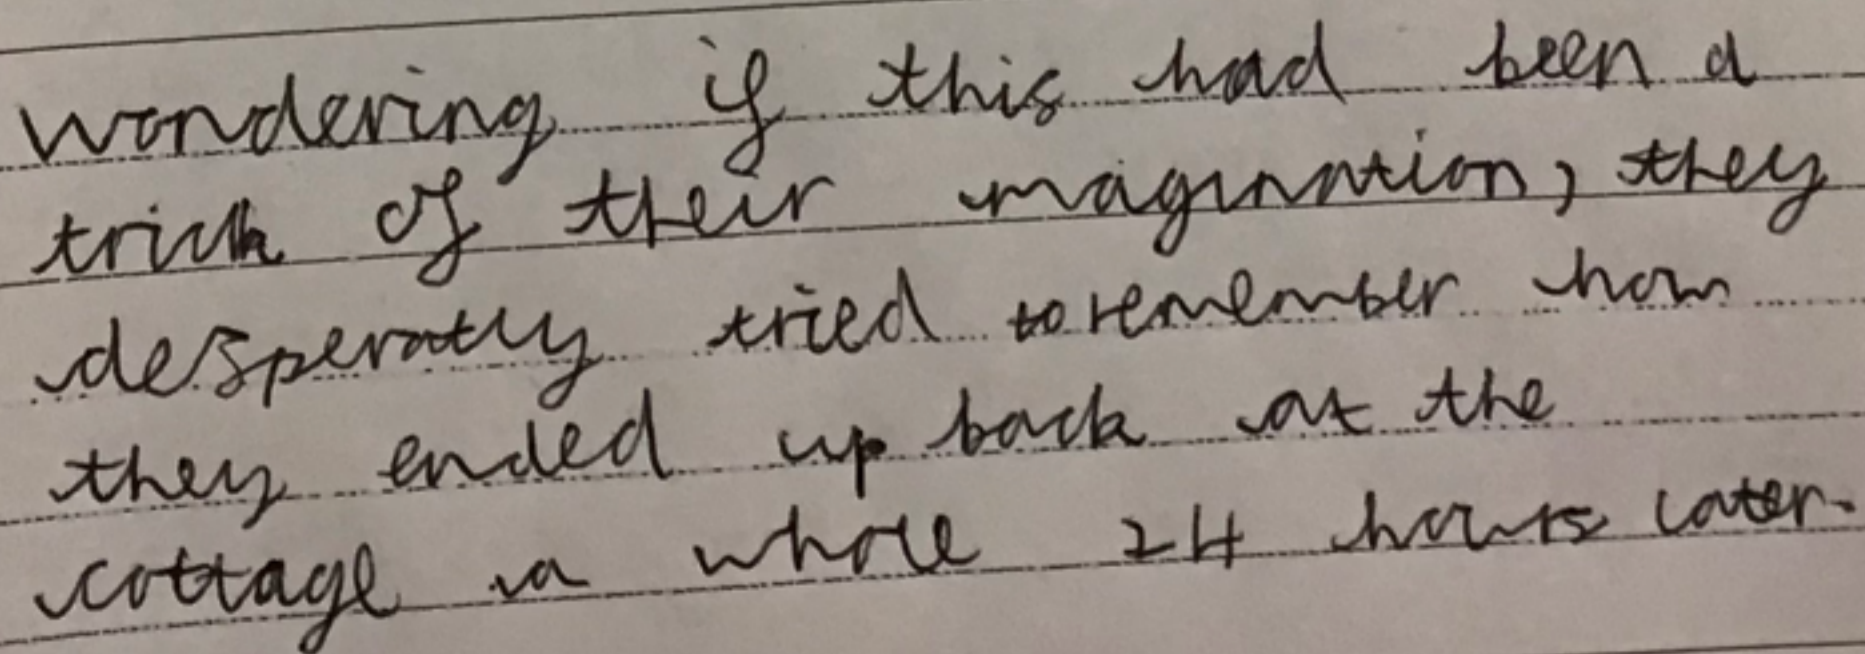 wondering if this had been a
trick of their magination, they
desperatly tried to remember how
they ended up back at the
cottage a whole 24 hours later.